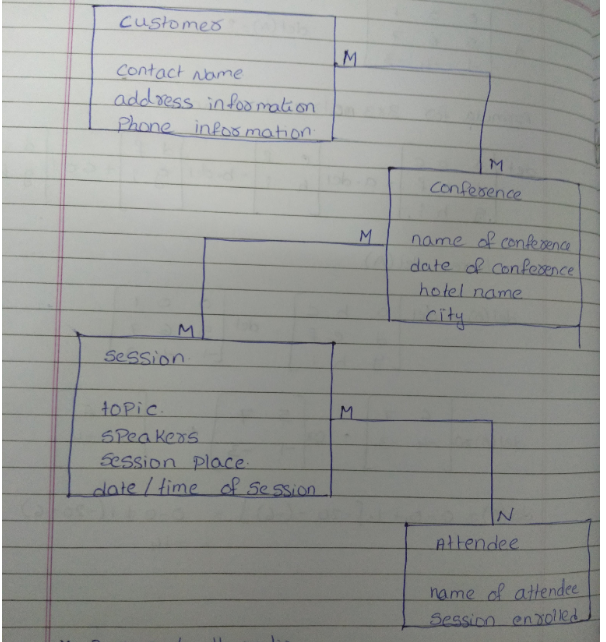 Customer
M
contact Name
address information
Phone information
M
conference
M
name of conference
date of conference
hotel name
city
M
session
topic
speakers
session place
date/time of session
M
N
Attendee
name of attendee
session enrolled